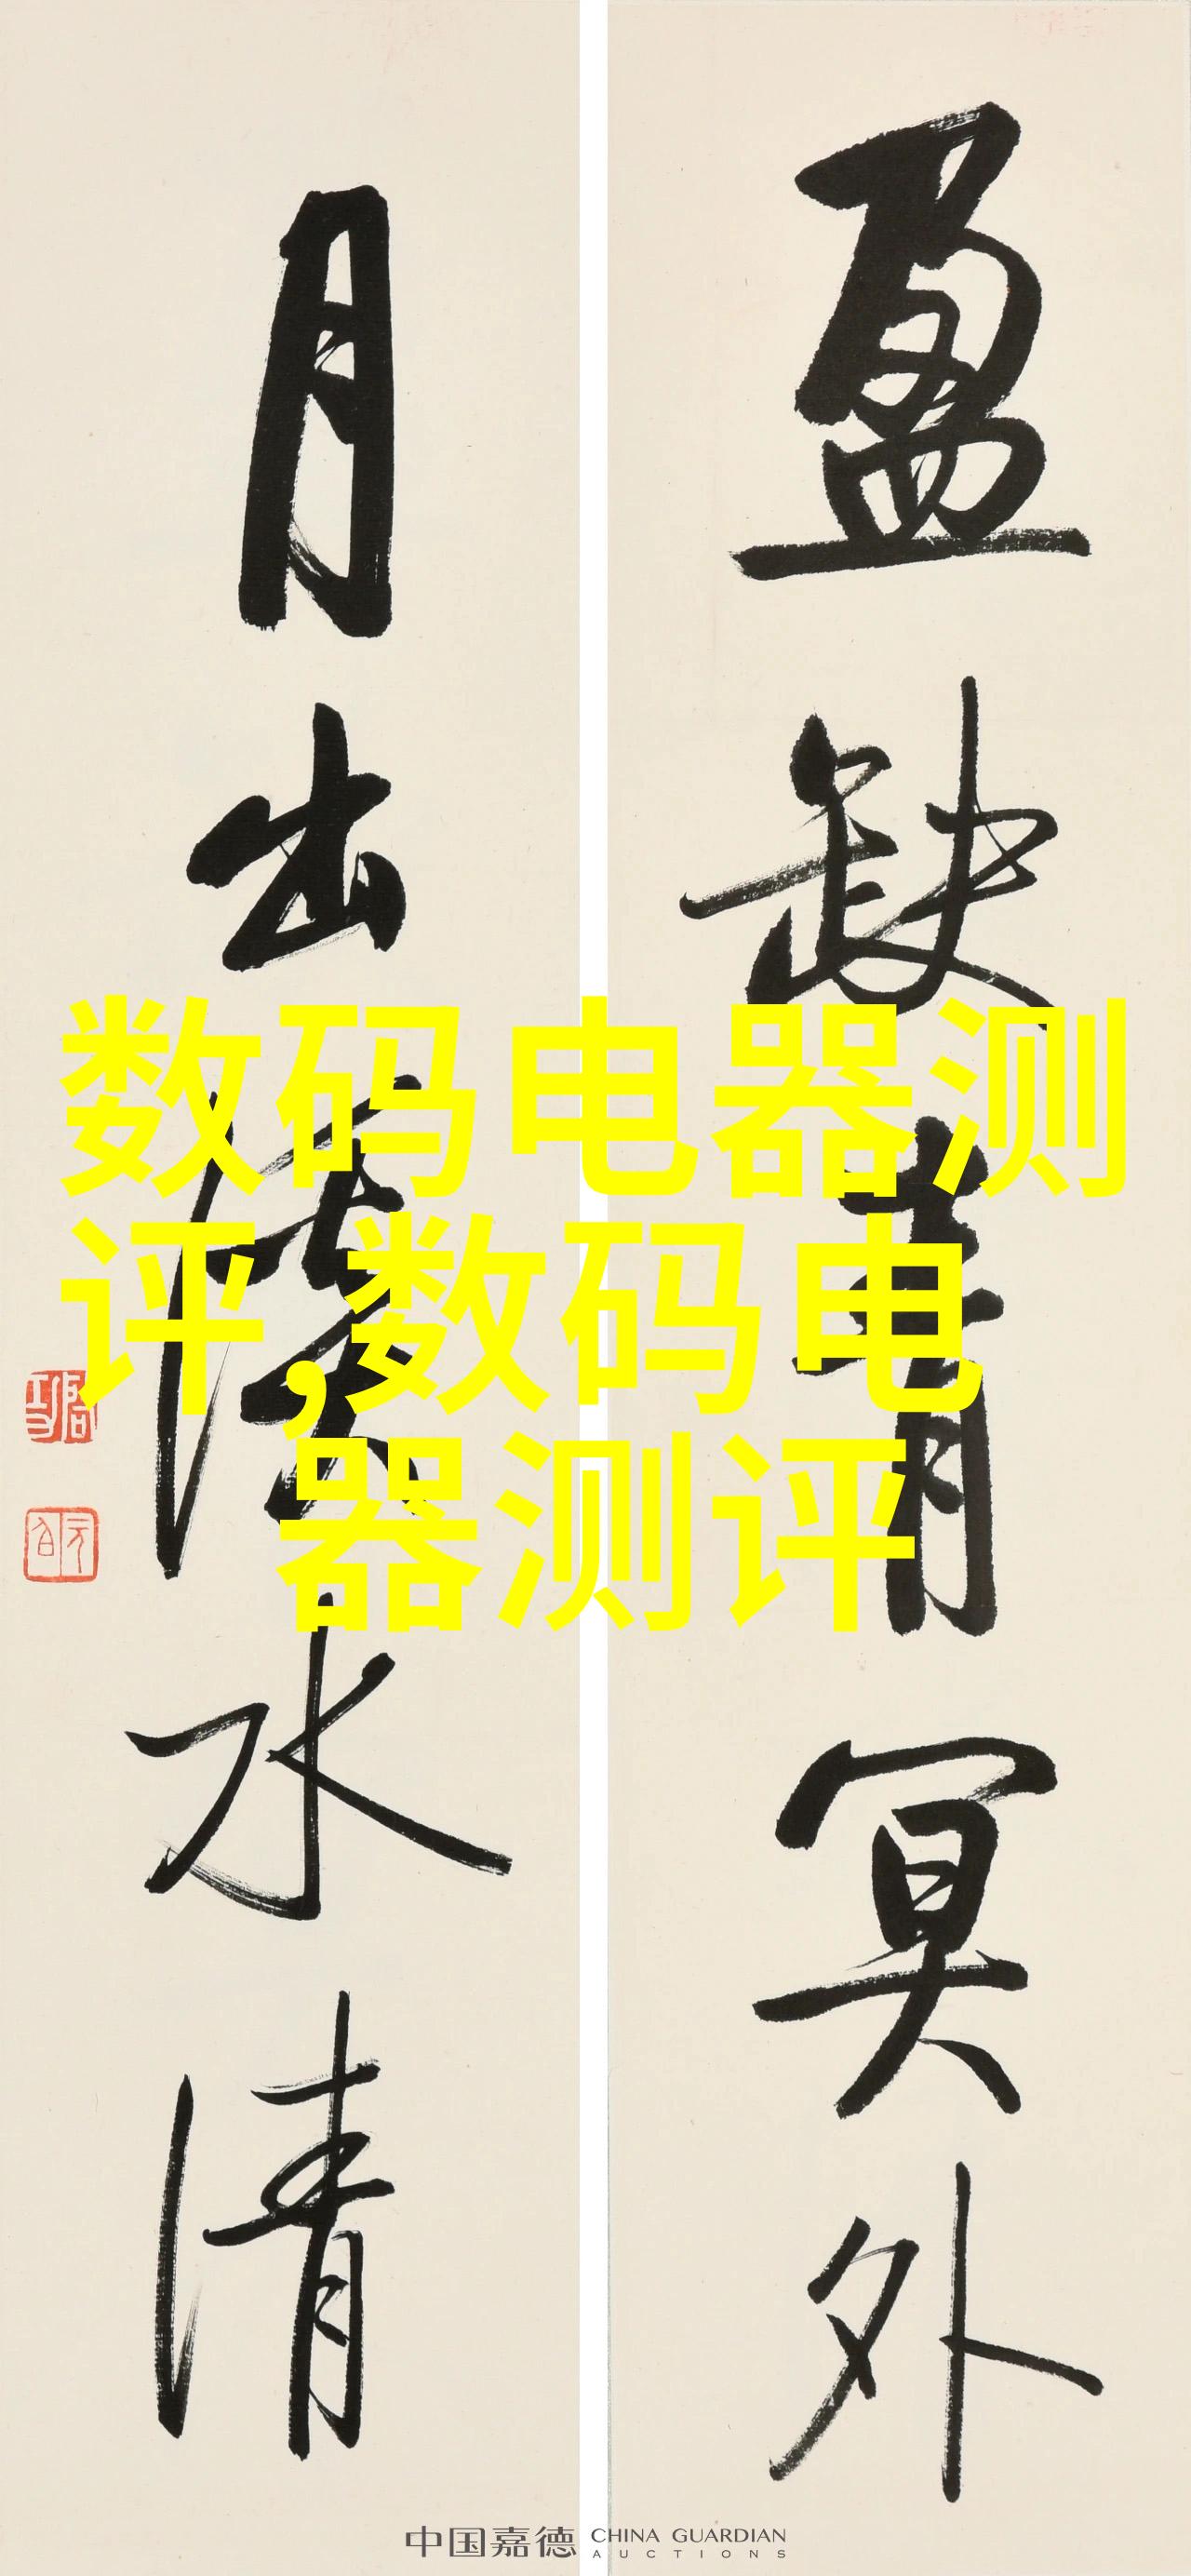 盈缺青冥外
月出水清
数码电器测
评,数码电
器测评
中国嘉德 CHINA GUARDIAN
AUCTIONS